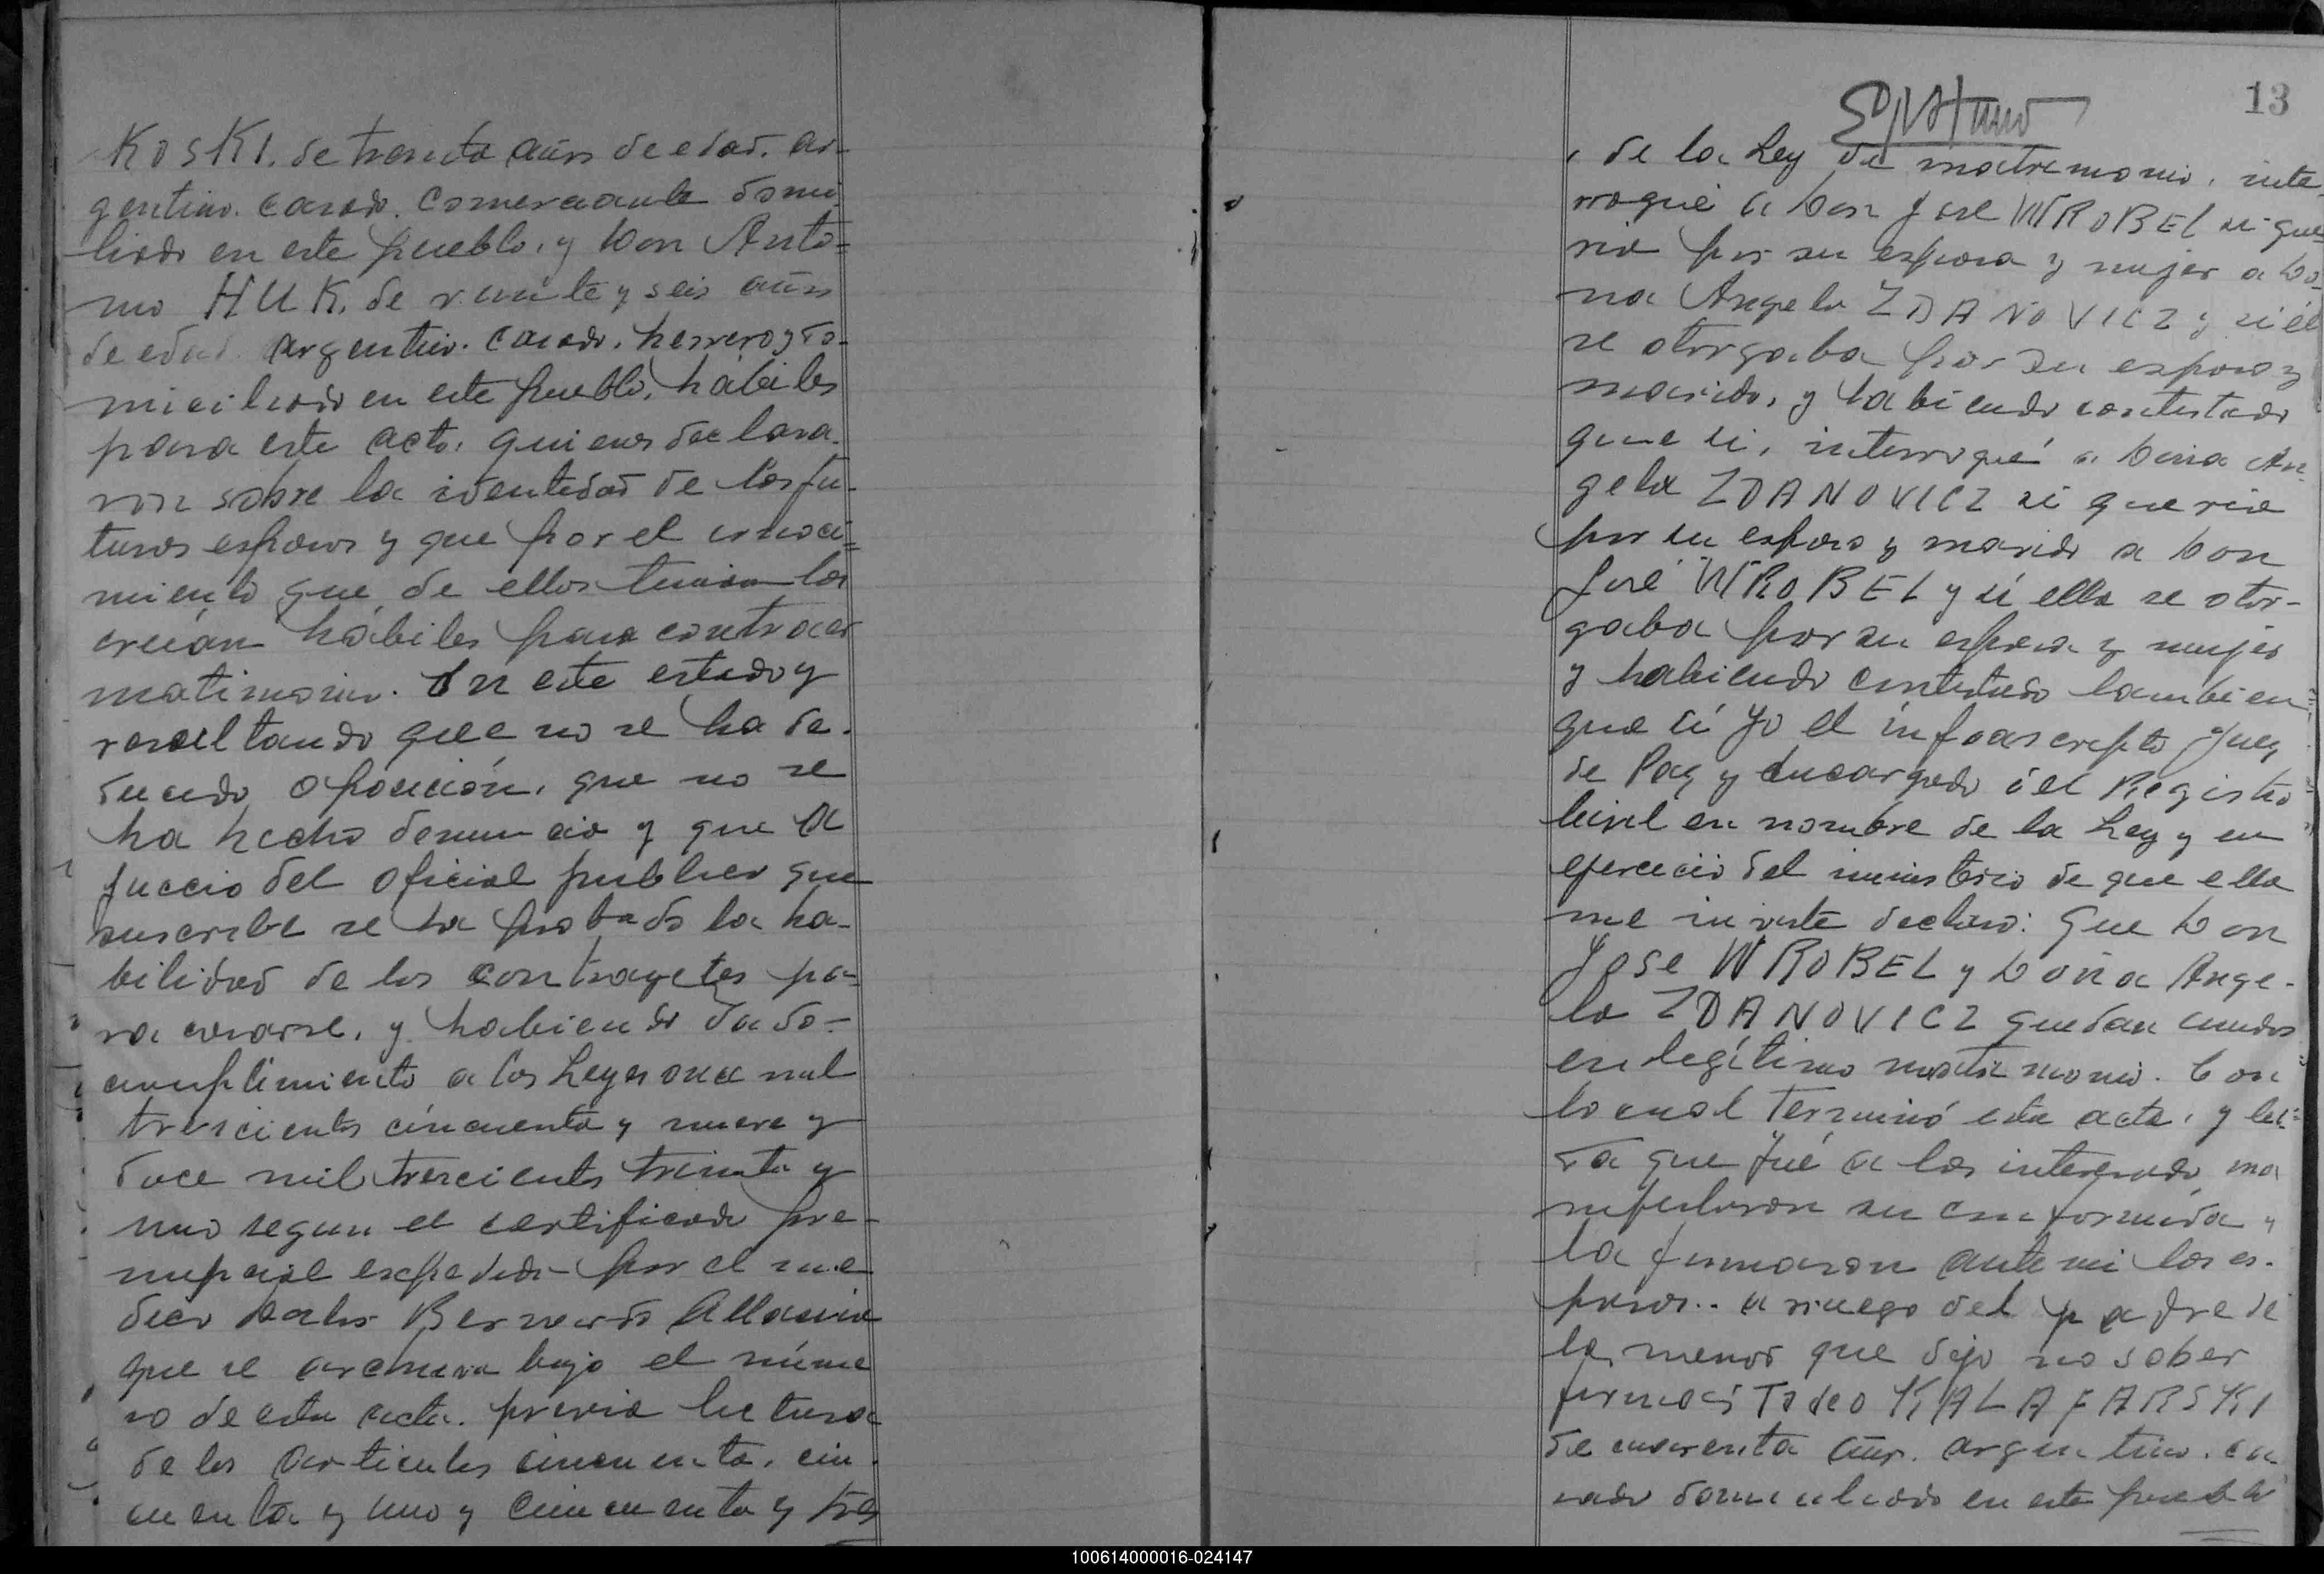 KOSKI. de treinta años de edad. ar-
gentino. casado. comerciante domi
liado en este pueblo, y Don Anto=
nio HUK. de veinte y seis años
de edad. argentino. casado. herrero y do-
miciliado en este pueblo, hábiles
para este acto. quienes declara-
ron sobre la identidad de los fu-
turos esposos y que por el conoci=
miento que de ellos tenian los
creían hábiles para contraer
matimonio. En este estado y
resultando que no se ha de-
ducido oposición, que no se
ha hecho denuncia y que a
juccio del oficial publico que
suscribe se ha probado la ha-
bilidad de los contrayetes pa-
ra casarse, y habiendo dado-
cumplimiento a las Leyes once mil
trescientos cincuenta y nueve y
doce mil trescientos treinta y
uno segun el certificado pre-
nupcial expedido por el me
dico Carlos Bernardo Allasia
que se archiva bajo el núme
ro de esta acta. previa lectura
de los articulos cincuenta, cin-
cuenta y uno y cincuenta y tres
13
, de la Ley de matremonio, inte
rrogué a Don Jose WROBEL si que
ria por su esposa y mujer a Do-
na Angela ZDANOVICZ y si él
se otorgaba por su esposo y
marido, y habiendo contestado
que si, interrogué a Dona An
gela ZDANOVICZ si queria
por su esposo y marido a Don
José WROBEL y si ella se otor-
gaba por su esposa y mujer
y habiendo contestado tambien
que sí yo el infrascripto Juez
de Paz y encargado del Registro
Civil en nombre de la Ley y en
ejercicio del ministerio de que ella
me inviste declaro: Que Don
Jose WROBEL y Doña Ange-
la ZDANOVICZ quedan unidos
en legítimo matrimonio. Con
lo cual terminó esta acta, y lei-
da que fué a los interesado ma
nifestaron su conformida y
la firmaron ante mi los es-
posos.. a ruego del padre de
la menor que dijo no saber
firmar Tadeo KALAFARSKI
de cuarenta años. argentino. ca
sado domiciliado en este pueblo